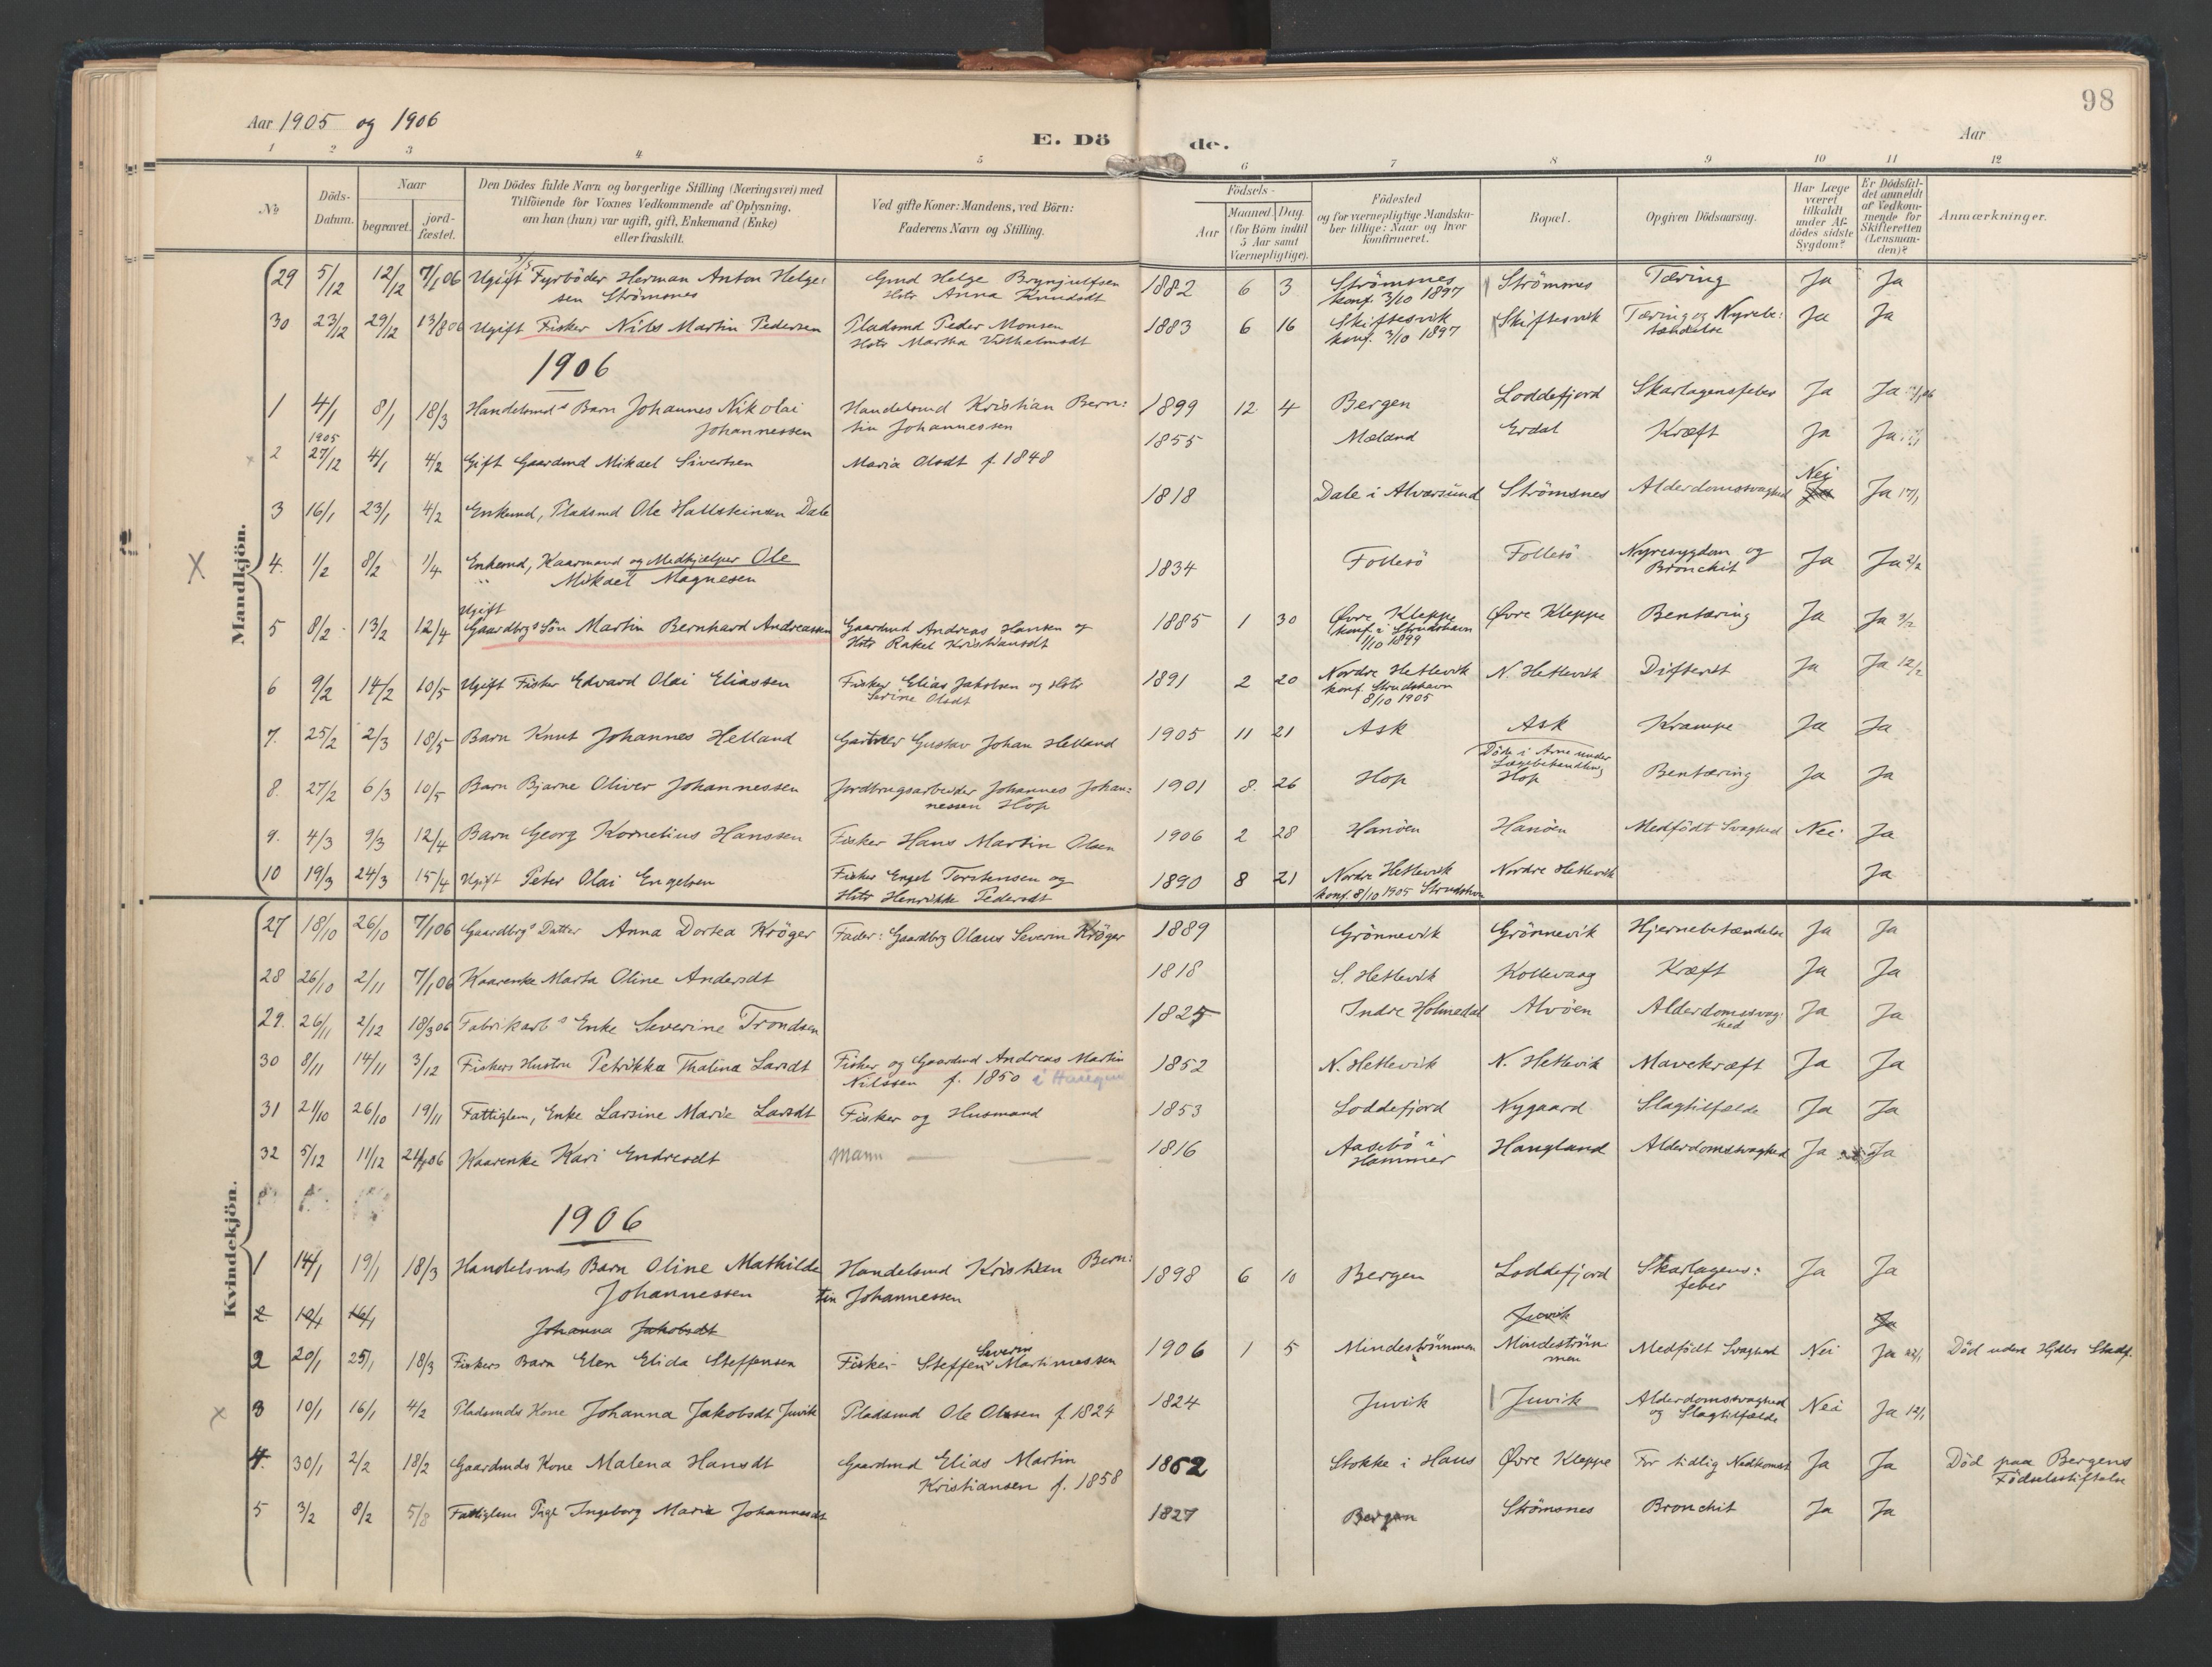 98
Aar 1905 og 1906
E. Dö de.
Aar
1 2 3 4 5 6 7 8 9 10 11 12
No
Döds-Datum.
Naar
begravet.
jord-fæstet.
Den Dödes fulde Navn og borgerlige Stilling (Næringsvei) med
Tilföiende for Voxnes Vedkommende af Oplysning,
om han (hun) var ugift, gift, Enkemand (Enke)
eller fraskilt.
Ved gifte Koner: Mandens, ved Börn:
Faderens Navn og Stilling.
Födsels-
Aar
Maaned. Dag.
(for Börn indtil
5 Aar samt
Værnepligtige).
Födested
og for værnepligtige Mandska-
ber tillige: Naar og hvor
konfirmeret.
Bopæl.
Opgiven Dödsaarsag.
Har Læge
været
tilkaldt
under Af-
dödes sidste
Sygdom?
Er Dödsfal-
det anmeldt
af Vedkom-
mende for
Skifteretten
(Lensman-
den)?
Anmærkninger.
Mandkjön.
29 5/12 12/12 7/1 06 Ugift Fyrböder Herman Anton Helge: Gmd Helge Brynjulfsen 1882 6 3 Strömsnes Strömsnes Tæring Ja Ja
sen Strömsnes Hstr Anna Knudsdt konf. 3/10 1897
30 23/12 29/12 13/8 06 Ugift Fisker Nils Martin Pedersen Pladsmd Peder Monsen 1883 6 16 Skiftesvik Skiftesvik Tæring og Nyrebe: Ja Ja
Hstr Martha Vilhelmsdt konf. 3/10 1897 tændelse
1906
1 4/1 8/1 18/3 Handelsmds Barn Johannes Nikolai Handelsmd Kristian Bern: 1899 12 4 Bergen Loddefjord Skarlagensfeber Ja Ja
Johannessen tin Johannessen
2 1905 27/12 4/1 4/2 Gift Gaardmd Mikael Sivertsen Maria Olsdt f. 1848 1855 Mæland Erdal Kræft Ja Ja
3 16/1 23/1 4/2 Enkemd, Pladsmd Ole Hallsteinsen Dale 1818 Dale i Alversund Strömsnes Alderdomssvaghed Nei Ja Ja 17/1
X 4. 1/2 8/2 1/4 Enkemd, Kaarmand og Medhjælper Ole 1834 Follesö Follesö Nyresygdom og Ja Ja 2/2
Mikael Magnesen Bronchit
5 8/2 13/2 12/4 Ugift Gaardbrgs Sön Martin Bernhard Andreassen Gaardmd Andreas Hansen og 1885 1 30 Øvre Kleppe Øvre Kleppe Bentæring Ja Ja 9/2
Hstr Rakel Kristiansdt konf. i Strudshavn
1/10 1899
6 9/2 14/2 10/5 Ugift Fisker Edvard Olai Eliassen Fisker Elias Jakobsen og Hstr 1891 2 20 Nordre Hetlevik N. Hetlevik Difterit Ja Ja 12/2
Serine Olsdt konf. Strudshavn
8/10 1905
7. 25/2 2/3 18/5 Barn Knut Johannes Helland Gartner Gustav Johan Helland 1905 11 21 Ask Ask Krampe Ja Ja
Döde i Arne under
Lægebehandling
8. 27/2 6/3 10/5 Barn Bjarne Oliver Johannessen Jordbrugsarbeider Johannes Johan: 1901 8. 26 Hop Hop Bentæring Ja Ja
nessen Hop
9. 4/3 9/3 12/4 Barn Georg Kornelius Hanssen Fisker Hans Martin Olsen 1906 2 28 Hanöen Hanöen Medfödt Svaghed Nei Ja
10 19/3 24/3 15/4 Ugift Peter Olai Engelsen Fisker Engel Torstensen og 1890 8 21 Nordre Hetlevik Nordre Hetlevik Ja
Hstr Henrikke Pedersdt konf. 8/10 1905 Strudshavn
Kvindekjön.
27 18/10 26/10 7/1 06 Gaardbrgs Datter Anna Dortea Kröger Fader: Gaardbrg Olaus Severin Kröger 1889 Grönnevik Grönnevik Hjernebetændelse Ja Ja
28 26/10 2/11 7/1 06 Kaarenke Marta Oline Andersdt 1818 S. Hetlevik Kollevaag Kræft Ja Ja
29. 26/11 2/12 18/3 06 Fabrikarbs Enke Severine Trondsen 1825 Indre Holmedal Alvöen Alderdomssvag: Ja Ja
hed
30 8/11 14/11 3/12 Fiskers Hustru Petrikke Thalina Larsdt Fisker og Gaardmd Andreas Martin 1852 N. Hetlevik N. Hetlevik Mavekræft Ja Ja
Nilssen f. 1850 i Haugen
31 21/10 26/10 19/11 Fattiglem, Enke Larsine Marie Larsdt Fisker og Husmand 1853 Loddefjord Nygaard Slagtilfælde Ja Ja
32 5/12 11/12 21/1 06 Kaarenke Kari Endresdt Mann 1816 Aasebö i Haugland Alderdomssvaghed Ja Ja
Hammer
1906
1 14/1 19/1 18/3 Handelsmds Barn Oline Mathilde Handelsmd Kristian Bern: 1898 6 10 Bergen Loddefjord Skarlagens: Ja Ja
Johannessen tin Johannessen feber
2 10/1 16/1 Johanna Jakobsdt Juvik Ja
2 20/1 25/1 18/3 Fiskers Barn Elen Elida Steffensen Fisker Steffen Severin Martinussen 1906 1 5 Mindeströmmen Mindeström: Medfödt Svaghed Nei Ja 22/1 Död uden Hjdbs Stadf.
men
X 3 10/1 16/1 4/2 Pladsmds Kone Johanna Jakobsdt Juvik Pladsmd Ole Olsen f. 1824 1824 Juvik Juvik Alderdomssvaghed Nei Ja 12/1
og Slagtilfælde
4. 30/1 2/2 18/2 Gaardmds Kone Malena Hansdt Gaardmd Elias Martin 1862 Stokke i Haus Øvre Kleppe For tidlig Nedkomst Ja Ja Död paa Bergens
Kristiansen f. 1858 Födselsstiftelse
5 3/2 8/2 5/8 Fattiglem Pige Ingeborg Marie Johannesdt 1827 Bergen Strömsnes Bronchit Ja Ja